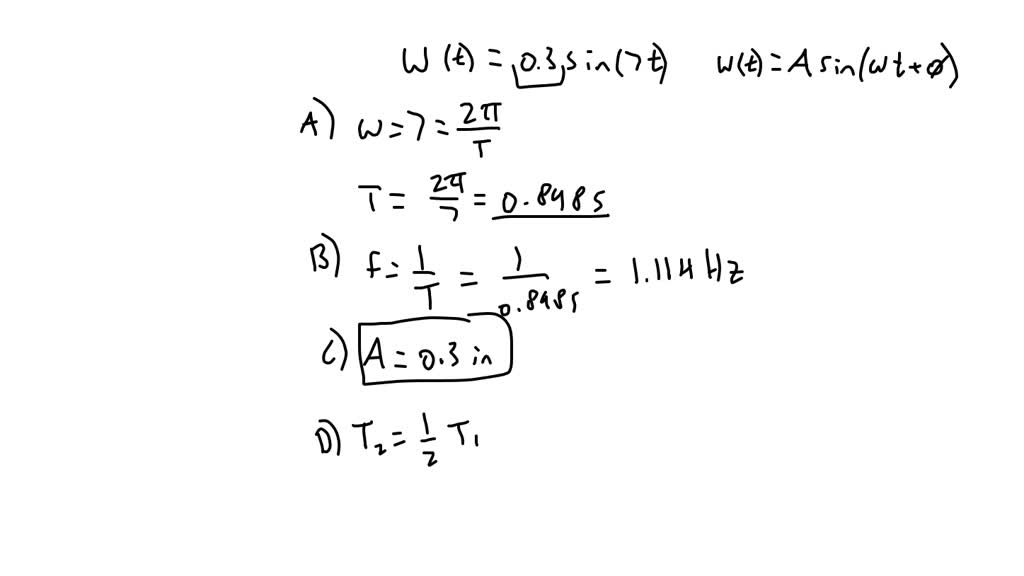 W(t) = 0.3 sin(7t) w(t) = A sin(ωt + ø)
A) ω = 7 = 2π/T
T = 2π/7 = 0.898 s
B) f = 1/T = 1/0.898s = 1.114 Hz
C) A = 0.3 in
D) T₂ = 1/2 T₁